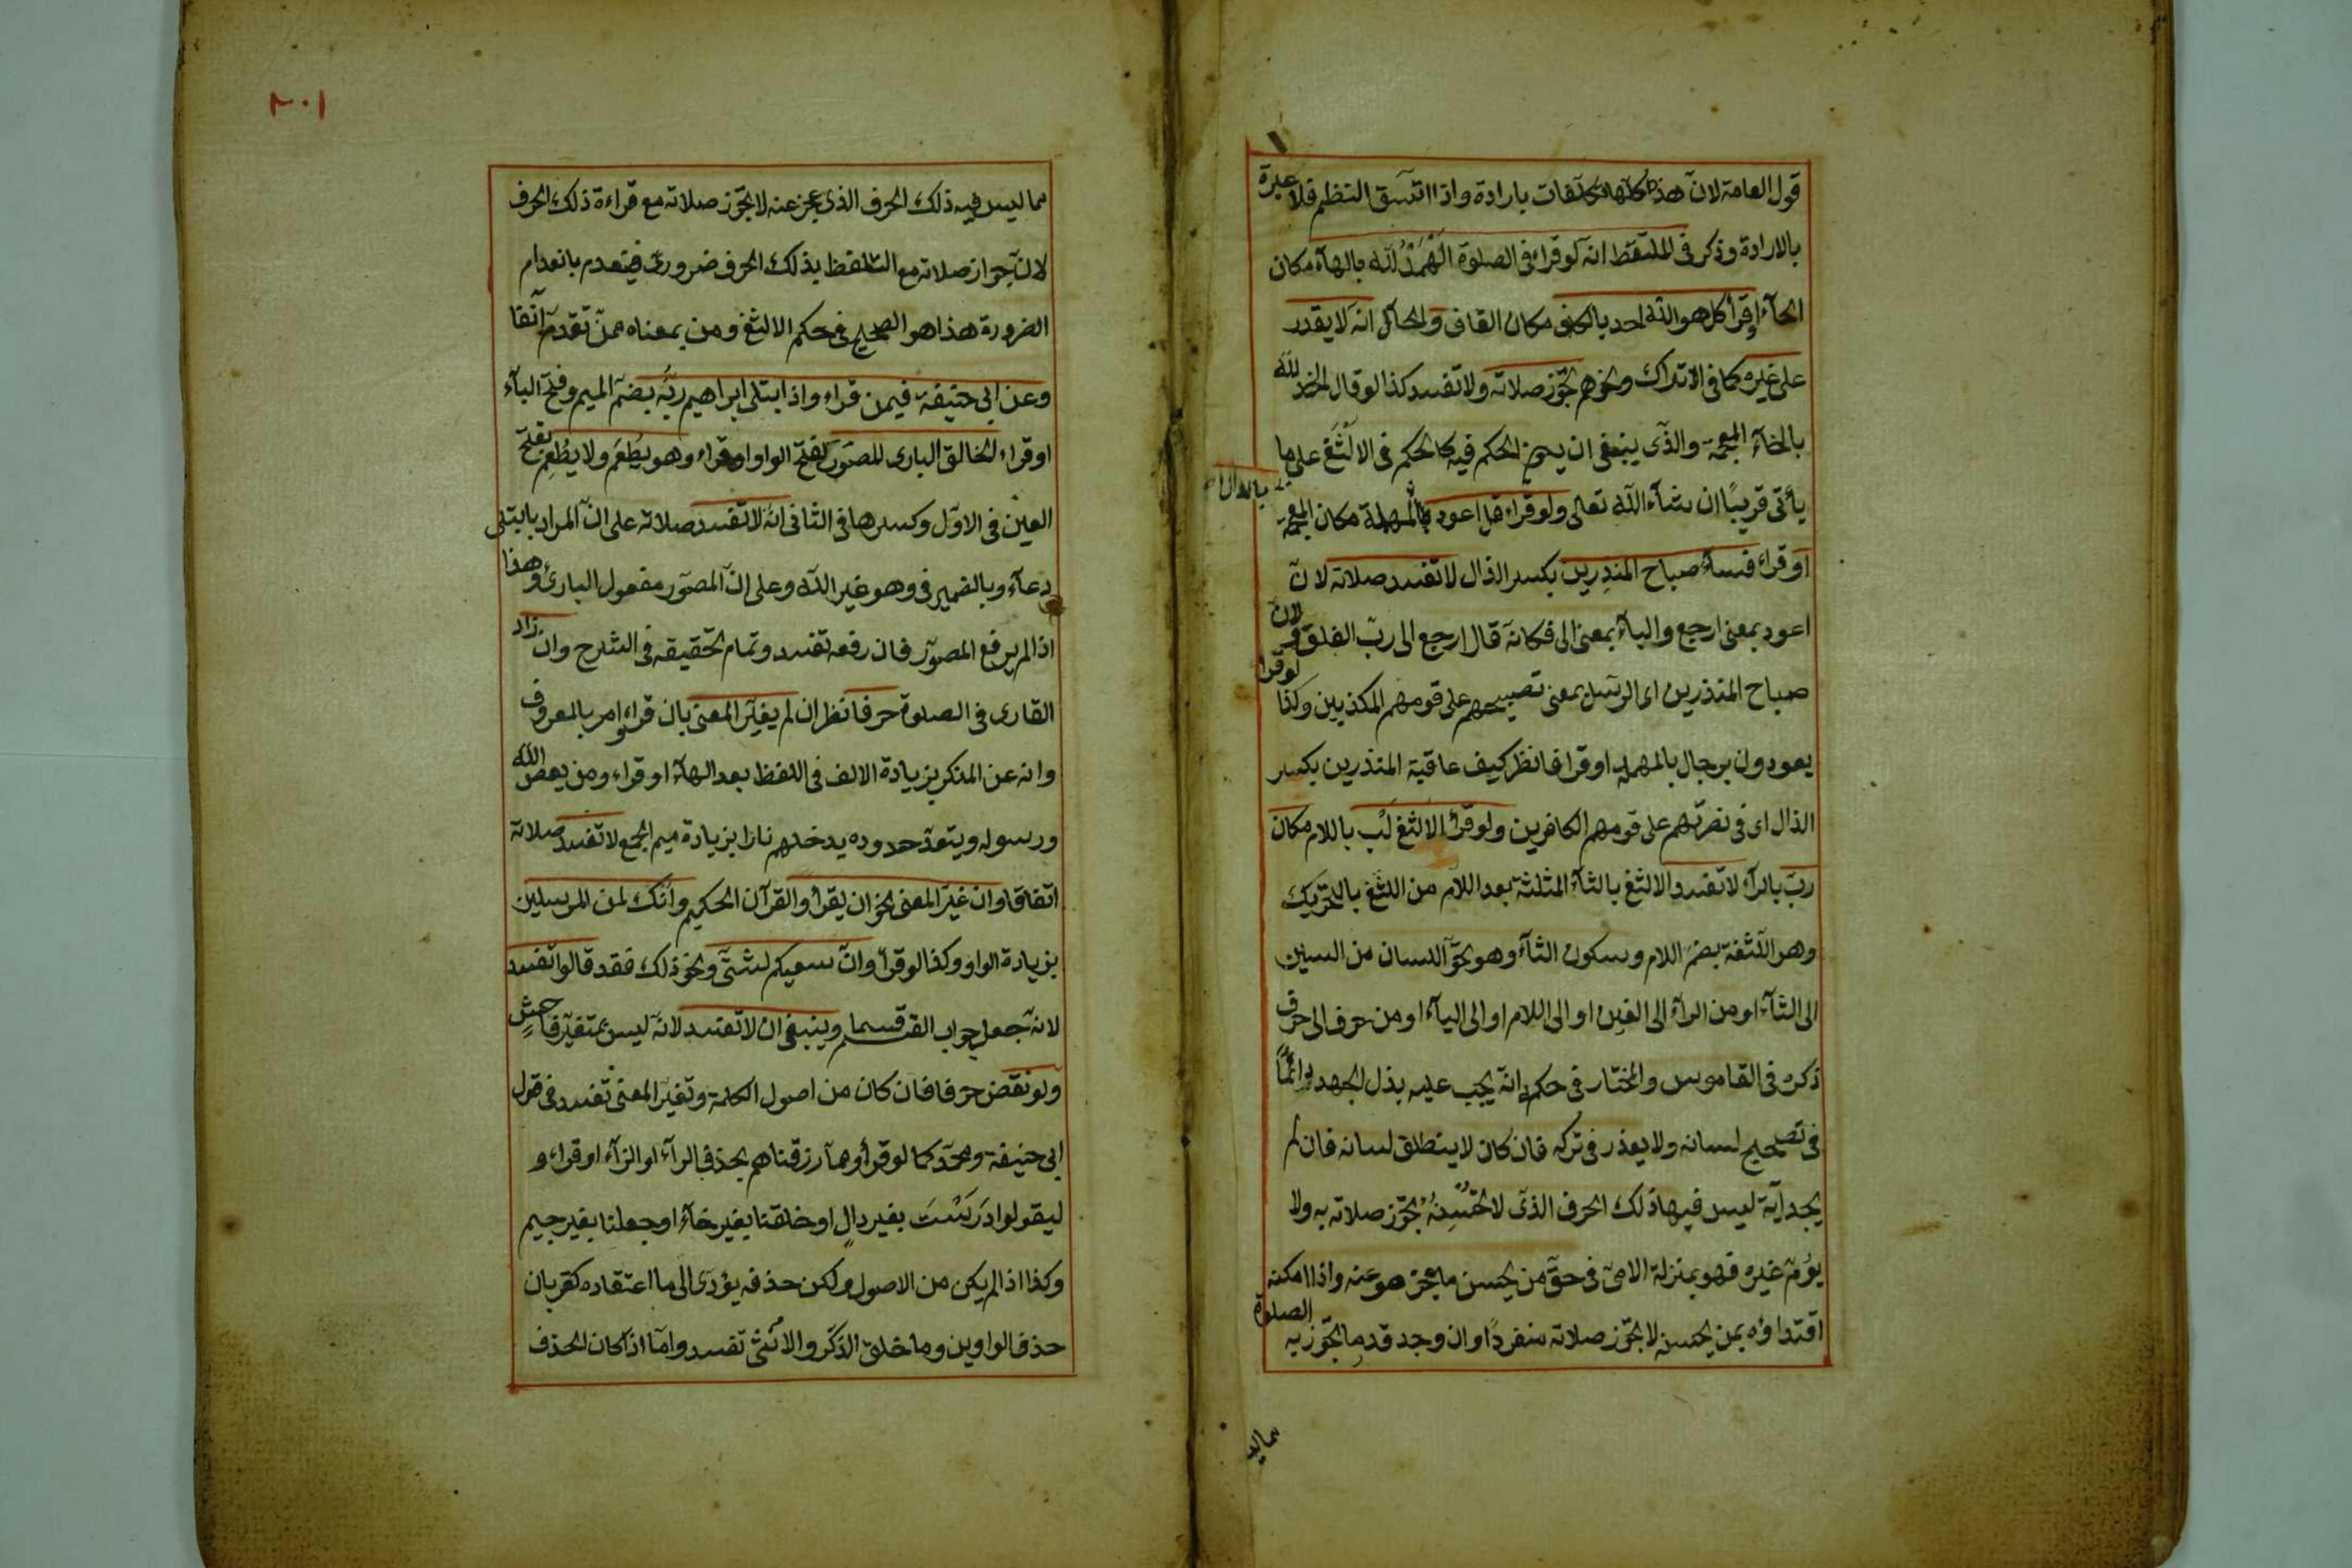 قول العامة لان هذه كلها تكلفات باردة واذا اتسق النظم فلا عبرة
بالارادة وذكر فى الملتقط انه لو قراء فى الصلوة الهمد لله بالهآء مكان
الحآء او قرأ كل هو الله احد بالكاف مكان القاف والحال انه لا يقدر
على غيره كما فى الاتراك ونحوهم تجوز صلاته ولا تفسد كذا لو قال الخمد لله
بالخآء المعجمة والذى ينبغى ان يكون الحكم فيه كالحكم فى الالثغ على ما
يأتى قريبًا ان شآء الله تعالى ولو قراء قل اعود بالمهملة مكان المعجمة
بالدال
او قراء فسآء صباح المنذِرين بكسر الذال لا تفسد صلاته لان
اعود بمعنى ارجع والبآء بمعنى الى فكانه قال ارجع الى رب الفلق ولان
صباح المنذرين اى الرسل بمعنى تصبيحهم على قومهم المكذبين وكذا لو قرأ
يعودون برجال بالمهملة او قرا فانظر كيف عاقبة المنذرين بكسر
الذال اى فى نصرتهم على قومهم الكافرين ولو قرأ الالثغ لب باللام مكان
رب بالرآء لا تفسد والالثغ بالثآء المثلثة بعد اللام من اللثغ بالتحريك
وهو اللثغة بضم اللام وسكون الثآء وهو تحول اللسان من السين
الى الثآء او من الرآء الى الغين او الى اللام او الى اليآء او من حرف الى حرف
ذكره فى القاموس والمختار فى حكمه انه يجب عليه بذل الجهد دائمًا
فى تصحيح لسانه ولا يعذر فى تركه فان كان لا ينطلق لسانه فان لم
يجد آية ليس فيها ذلك الحرف الذى لا يحسنه تجوز صلاته به ولا
يؤم غيره فهو بمنزلة الامى فى حق من يحسن ما عجز هو عنه واذا امكنه
اقتداؤه بمن يحسنه لا تجوز صلاته منفردًا وان وجد قدر ما تجوز به الصلوة
مما ليس
٢٠١
مما ليس فيه ذلك الحرف الذى عجز عنه لا تجوز صلاته مع قراءة ذلك الحرف
لان جواز صلاته مع التلفظ بذلك الحرف ضرورى فينعدم بانعدام
الضرورة هذا هو الصحيح فى حكم الالثغ ومن بمعناه ممن تقدم آنفا
وعن ابى حنيفة فيمن قراء واذ ابتلى ابراهيم ربه بضم الميم وفتح البآء
او قراء الخالق البارى المصور بفتح الواو او قراء وهو يُطعَم ولا يُطعِم بفتح
العين فى الاول وكسرها فى الثانى انه لا تفسد صلاته على ان المراد بابتلى
دعآء وبالضمير فى وهو غير الله وعلى ان المصور مفعول البارئ وهذا
اذا لم يرفع المصور فان رفعه تفسد وتمام تحقيقه فى الشرح وان زاد
القارى فى الصلوة حرفا نظر ان لم يغير المعنى بان قراء وامر بالمعروف
وانه عن المنكر بزيادة الالف فى اللفظ بعد الهآء او قراء ومن يعص الله
ورسوله ويتعد حدوده يدخلهم نارا بزيادة ميم الجمع لا تفسد صلاته
اتفاقا وان غير المعنى نحو ان يقرأ والقرآن الحكيم وانك لمن المرسلين
بزيادة الواو وكذا لو قرأ وان سعيكم لشتى ونحو ذلك فقد قالوا تفسد
لانه جعل جواب القسم قسما وينبغى ان لا تفسد لانه ليس بتغير فاحش
ولو نقص حرفا فان كان من اصول الكلمة وتغير المعنى تفسد فى قول
ابى حنيفة ومحمد كما لو قرأ ومما رزقناهم بحذف الرآء او الزآء او قراء و
ليقولوا درست بغير دال او خلقنا بغير خآء او جعلنا بغير جيم
وكذا اذا لم يكن من الاصول ولكن حذفه يؤدى الى ما اعتقاده كفر بان
حذف الواو من وما خلق الذكر والانثى تفسد واما اذا كان الحذف